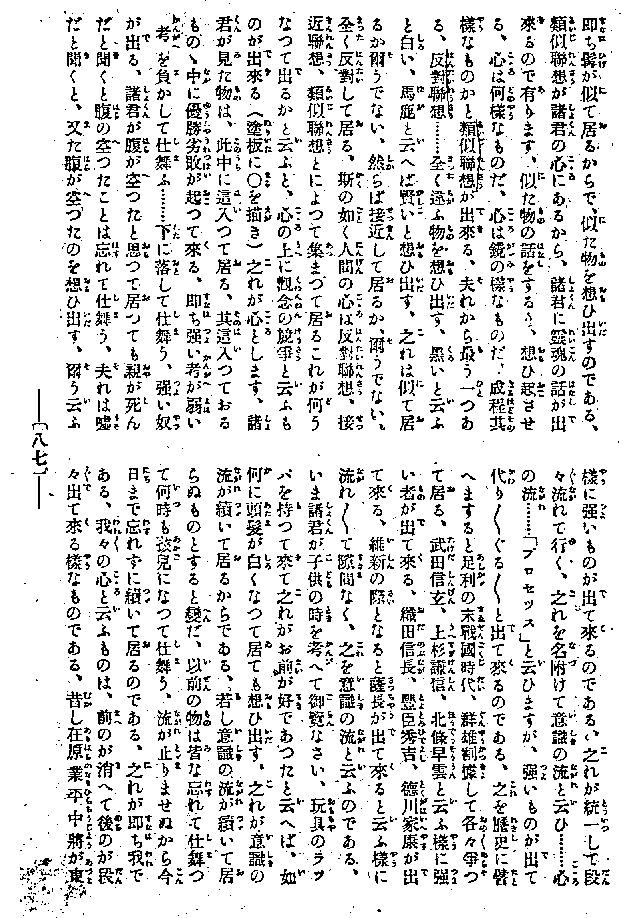 即ち髯が似て居るからで、似た物を想ひ出すのである、
類似聯想が諸君の心にあるから、諸君に靈魂の話が出
來るので有ります、似た物の話をするう、想ひ起させ
る、心は何樣なものだ、心は鏡の樣なものだ、成程其
樣なものかと類似聯想が出來る、夫れから最う一つあ
る、反對聯想……全く違ふ物を想ひ出す、黑いと云ふ
と白い、馬鹿と云へば賢いと想ひ出す、之れは似て居
るか爾うでない、然らば接近して居るか、爾うでない、
全く反對して居る、斯の如く人間の心は反對聯想、接
近聯想、類似聯想とによつて集まづて居るこれが何う
なつて出るかと云ふと、心の上に觀念の競爭と云ふも
のが出來る（塗板に〇を描き）之れが心とします、諸
君が見た物は、此中に這入つて居る、其這入つておる
もの丶中に優勝劣敗が起つて來る、即ち强い考が弱い
考を負かして仕舞ふ……下に落して仕舞う、强い奴
が出る、諸君が腹が空つたと思つて居つても親が死ん
だと聞くと腹の空つたことは忘れて仕舞う、夫れは噓
だと聞くと、又た腹が空づたのを想ひ出す、爾う云ふ
樣に强いものが出て來るのである、之れが統一して段
々流れて行く、之れを名附けて意識の流と云ひ……心
の流……「プロセッス」と云ひますが、强いものが出て
代り〱ぐる〱と出て來るのである、之を歷史に譬
へますると足利の末戰國時代、群雄割據して各々爭つ
て居る、武田信玄、上杉謙信、北條早雲と云ふ樣に强
い者が出て來る、織田信長、豐臣秀吉、德川家康が出
て來る、維新の際となると薩長が出て來ると云ふ樣に
流れ〱て隙間なく、之を意識の流と云ふのである、
いま諸君が子供の時を考へて御覽なさい、玩具のラッ
パを持つて來て之れがお前が好であつたと云へば、如
何に頭髮が白くなつて居ても想ひ出す、之れが意識の
流が續いて居るからである、若し意識の流が續いて居
らぬものとすると變だ、以前の物は皆な忘れて仕舞つ
て何時も孩兒になつて仕舞う、流が止りませぬから今
日まで忘れずに續いて居るのである、之れが即ち我で
ある、我々の心と云ふものは、前のが消へて後のが段
々出て來る樣なものである、昔し在原業平中將が東
〔八七〕